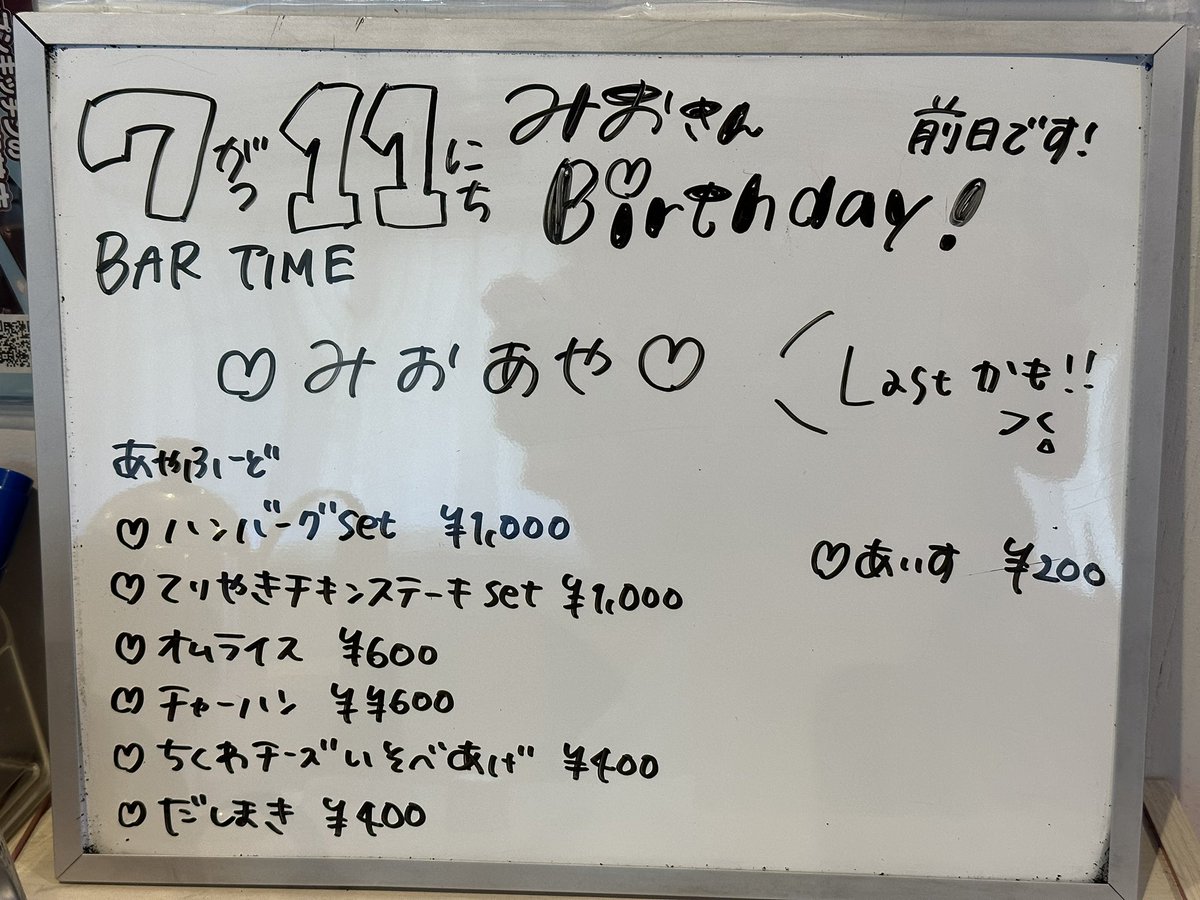 7がつ11にち みおさん Birthday! 前日です!
BAR TIME
♡みおあや♡ (Lastかも!!
あやふーど
♡ハンバーグset ¥1,000
♡てりやきチキンステーキset ¥1,000
♡オムライス ¥600
♡チャーハン ¥¥600
♡ちくわチーズいそべあげ ¥400
♡だしまき ¥400
♡あいす ¥200